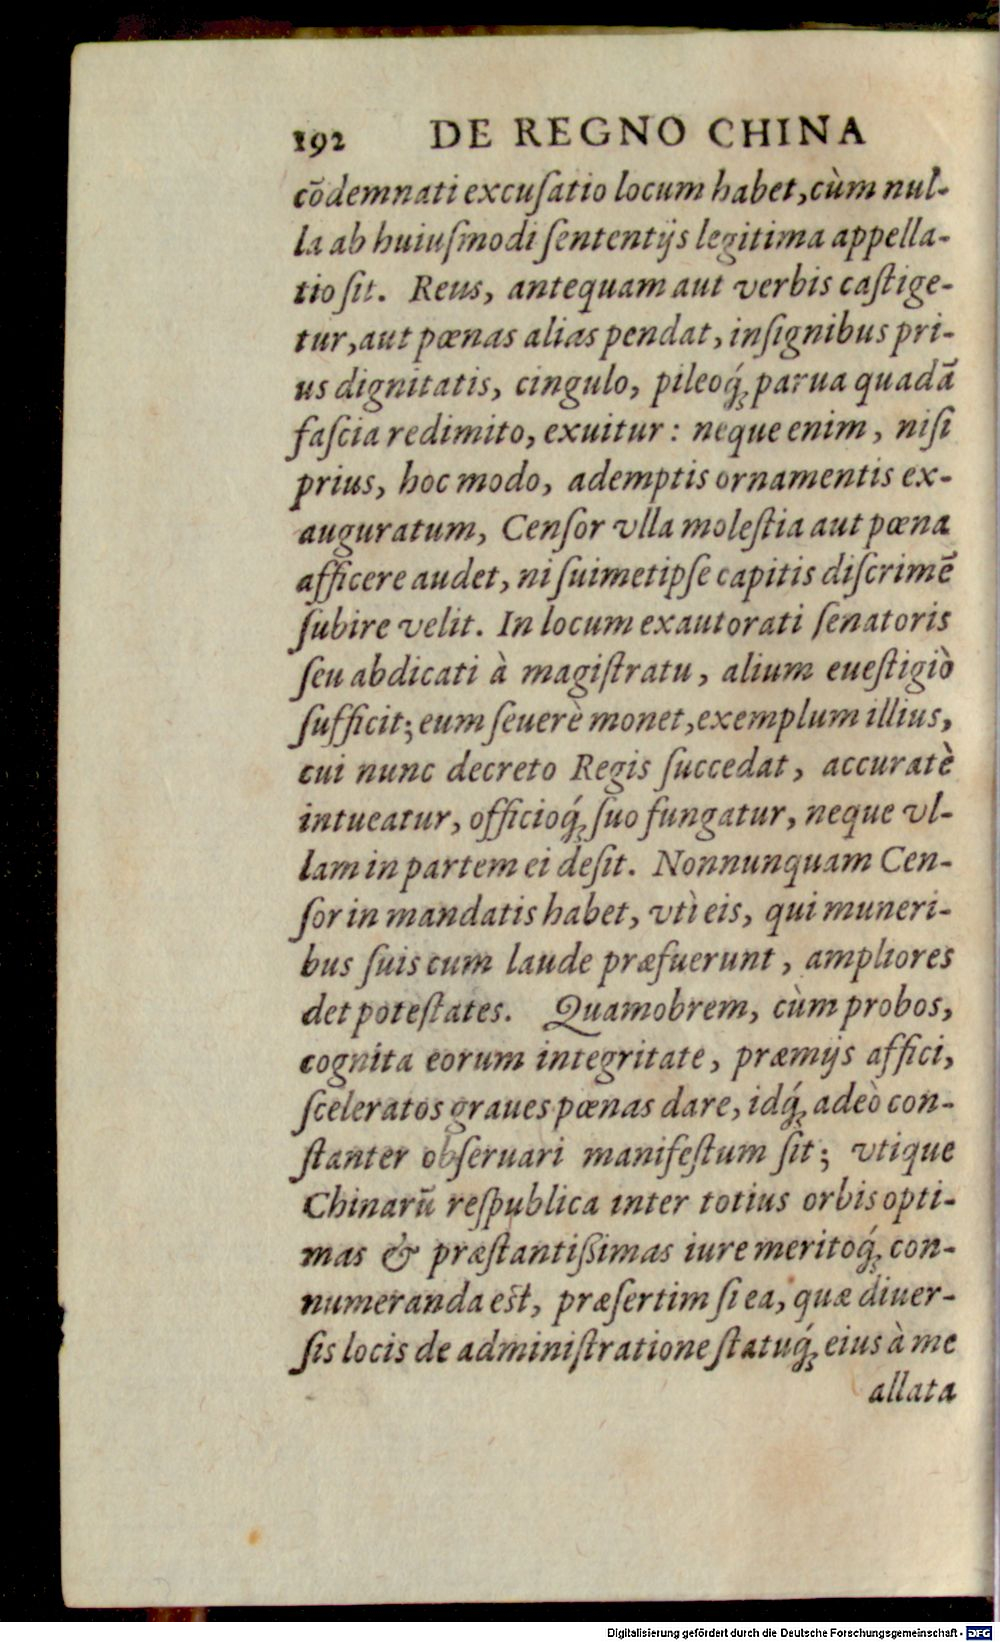 192 DE REGNO CHINA
cōdemnati excuſatio locum habet, cùm nul-
la ab huiuſmodi ſententijs legitima appella-
tio ſit. Reus, antequam aut verbis caſtige-
tur, aut pœnas alias pendat, inſignibus pri-
us dignitatis, cingulo, pileoq́; parua quadā
faſcia redimito, exuitur: neque enim, niſi
prius, hoc modo, ademptis ornamentis ex-
auguratum, Cenſor vlla moleſtia aut pœna
afficere audet, ni ſuimetipſe capitis diſcrimē
ſubire velit. In locum exautorati ſenatoris
ſeu abdicati à magiſtratu, alium eueſtigiò
ſufficit; eum ſeuerè monet, exemplum illius,
cui nunc decreto Regis ſuccedat, accuratè
intueatur, officioq́; ſuo fungatur, neque vl-
lam in partem ei deſit. Nonnunquam Cen-
ſor in mandatis habet, vtì eis, qui muneri-
bus ſuis cum laude præfuerunt, ampliores
det poteſtates. Quamobrem, cùm probos,
cognita eorum integritate, præmijs affici,
ſceleratos graues pœnas dare, idq́; adeò con-
ſtanter obſeruari manifeſtum ſit; vtique
Chinarū reſpublica inter totius orbis opti-
mas & præſtantißimas iure meritoq́; con-
numeranda eſt, præſertim ſi ea, quæ diuer-
ſis locis de adminiſtratione ſtatuq́; eius à me
allata
Digitalisierung gefördert durch die Deutsche Forschungsgemeinschaft - DFG